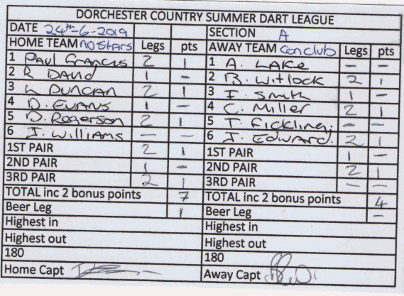 DORCHESTER COUNTRY SUMMER DART LEAGUE
DATE 24th-6-2019 SECTION A
HOME TEAM no stars Legs pts AWAY TEAM Conclub Legs pts
1 Paul 2 1 1 A. LAKE - -
2 R DAVID 1 - 2 B. Witlock 2 1
3 DUNCAN 2 1 3 F. Smith 1 -
4 D. EVANS 1 - 4 C. Miller 2 1
5 D. Rogerson 2 1 5 T. Fickling - -
6 I. Williams - - 6 J. Edward 2 1
1ST PAIR 2 1 1ST PAIR 1 -
2ND PAIR 1 - 2ND PAIR 2 1
3RD PAIR 2 1 3RD PAIR - -
TOTAL inc 2 bonus points 7 TOTAL inc 2 bonus points 4
Beer Leg 1 Beer Leg -
Highest in Highest in
Highest out Highest out
180 180
Home Capt Away Capt